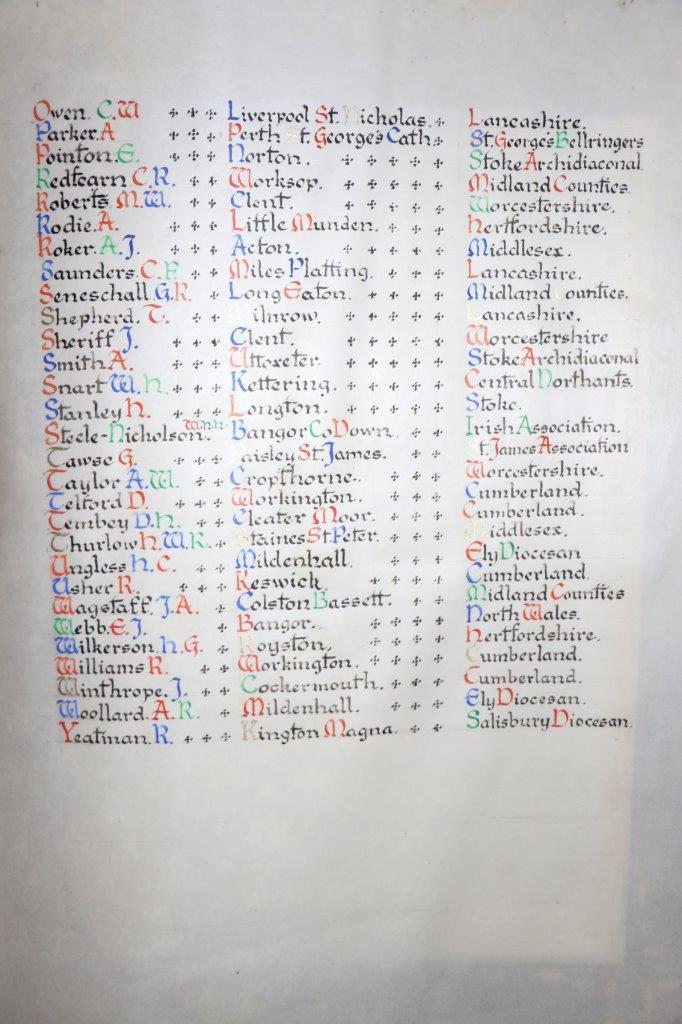 Owen. C.W Liverpool St. Nicholas. Lancashire.
Parker. A Perth St. George's Cath. St. George's Bellringers
Pointon. E. Norton. Stoke Archidiaconal
Redfearn C. R. Worksop. Midland Counties
Roberts M. W. Clent. Worcestershire.
Rodie. A. Little Munden. Hertfordshire.
Roker. A. J. Acton. Middlesex.
Saunders. C. F. Miles Platting. Lancashire.
Seneschall. G. R. Long Eaton. Midland Counties.
Shepherd. T. Milnrow. Lancashire.
Sheriff J. Clent. Worcestershire
Smith A. Uttoxeter. Stoke Archidiaconal
Snart W. H. Kettering. Central Northants.
Stanley H. Longton. Stoke.
Steele-Nicholson. W.H.H. Bangor Co Down. Irish Association.
Tawse G. Paisley St. James. St. James Association
Taylor A. W. Cropthorne. Worcestershire.
Telford D. Workington. Cumberland.
Tembey D. H. Cleator Moor. Cumberland.
Thurlow H. W. R. Staines St Peter. Middlesex.
Ungless H. C. Mildenhall. Ely Diocesan
Usher R. Keswick. Cumberland.
Wagstaff. J. A. Colston Bassett. Midland Counties
Webb. E. J. Bangor. North Wales.
Wilkerson. H. G. Royston. Hertfordshire.
Williams R. Workington. Cumberland.
Winthrope. J. Cockermouth. Cumberland.
Woollard. A. R. Mildenhall. Ely Diocesan.
Yeatman. R. Kington Magna. Salisbury Diocesan.